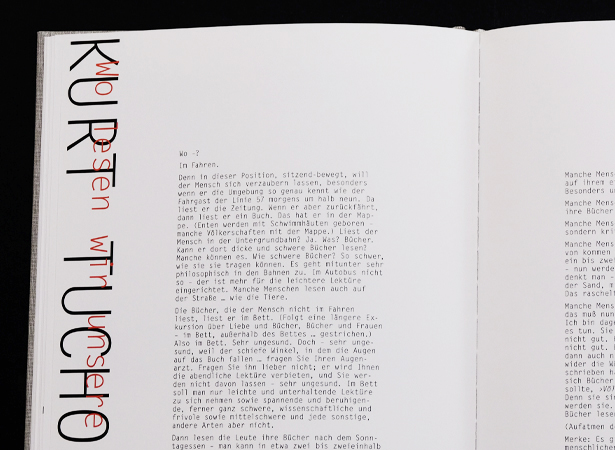 KURT TUCHO
Wo lesen wir unsere
Wo -?
Im Fahren.
Denn in dieser Position, sitzend-bewegt, will
der Mensch sich verzaubern lassen, besonders
wenn er die Umgebung so genau kennt wie der
Fahrgast der Linie 57 morgens um halb neun. Da
liest er die Zeitung. Wenn er aber zurückfährt,
dann liest er ein Buch. Das hat er in der Map-
pe. (Enten werden mit Schwimmhäuten geboren -
manche Völkerschaften mit der Mappe.) Liest der
Mensch in der Untergrundbahn? Ja. Was? Bücher.
Kann er dort dicke und schwere Bücher lesen?
Manche können es. Wie schwere Bücher? So schwer,
wie sie sie tragen können. Es geht mitunter sehr
philosophisch in den Bahnen zu. Im Autobus nicht
so - der ist mehr für die leichtere Lektüre
eingerichtet. Manche Menschen lesen auch auf
der Straße … wie die Tiere.
Die Bücher, die der Mensch nicht im Fahren
liest, liest er im Bett. (Folgt eine längere Ex-
kursion über Liebe und Bücher, Bücher und Frauen
- im Bett, außerhalb des Bettes … gestrichen.)
Also im Bett. Sehr ungesund. Doch - sehr unge-
sund, weil der schiefe Winkel, in dem die Augen
auf das Buch fallen … fragen Sie Ihren Augen-
arzt. Fragen Sie ihn lieber nicht; er wird Ihnen
die abendliche Lektüre verbieten, und Sie wer-
den nicht davon lassen - sehr ungesund. Im Bett
soll man nur leichte und unterhaltende Lektüre
zu sich nehmen sowie spannende und beruhigen-
de, ferner ganz schwere, wissenschaftliche und
frivole sowie mittelschwere und jede sonstige,
andere Arten aber nicht.
Dann lesen die Leute ihre Bücher nach dem Sonn-
tagessen - man kann in etwa zwei bis zweieinhalb
Manche Mens
auf ihrem e
Besonders u
Manche Mens
ihre Bücher
Manche Mens
sondern kri
Manche Mens
von kommen
ein bis zwe
- nun werde
denkt man -
der Sand, m
Das raschel
Manche Mens
das muß nun
Ich bin dage
es tun. Sie
nicht gut,
nicht gut.
dann auch n
wider die W
schrieben h
sich Bücher
sollte,
Denn sie sin
werden sie.
Bücher lese
(Aufatmen d
Merke: Es g